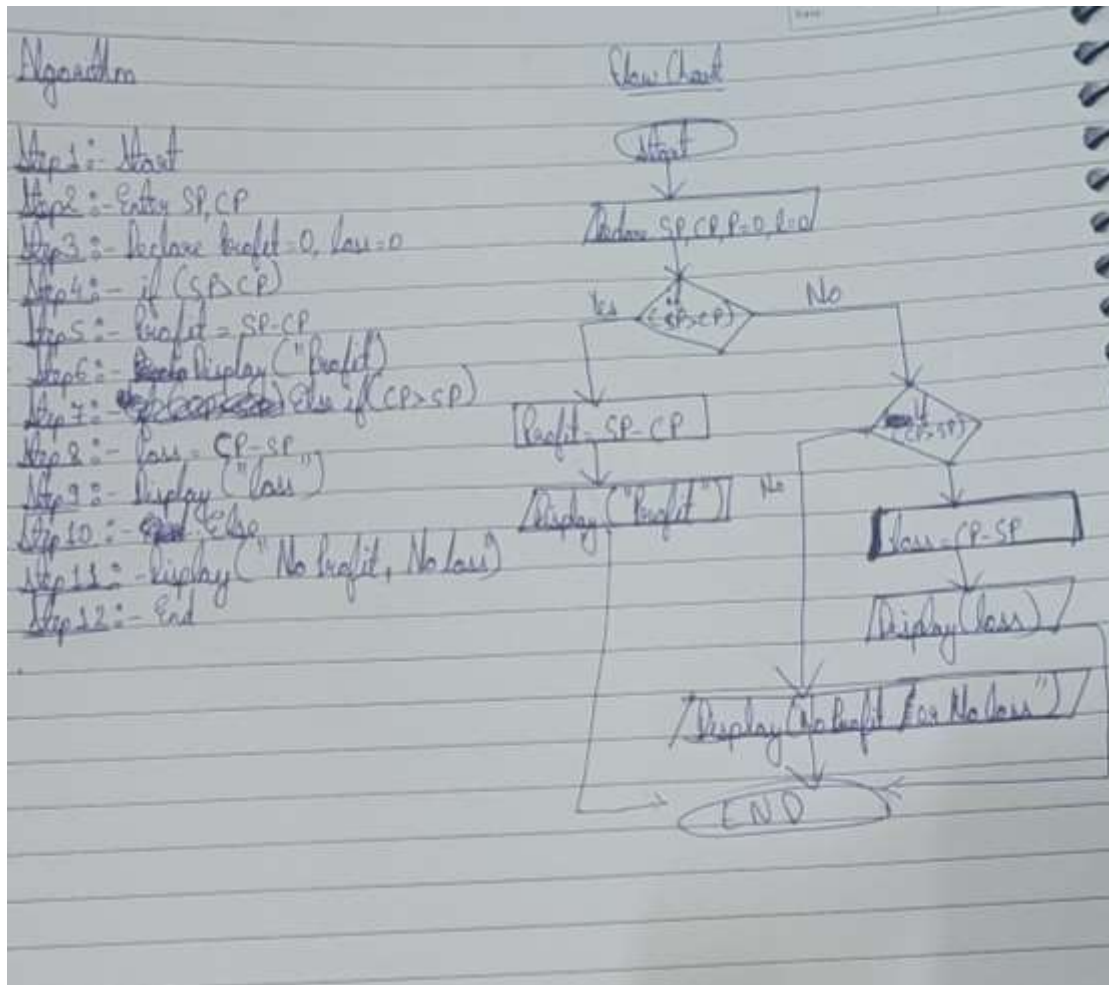 Algorithm
Step 1:- Start
Step 2:- Enter SP, CP
Step 3:- Declare Profit=0, loss=0
Step 4:- if (SP>CP)
Step 5:- Profit = SP-CP
Step 6:- Display ("Profit")
Step 7:- Else if (CP>SP)
Step 8:- loss = CP-SP
Step 9:- Display ("loss")
Step 10:- Else
Step 11:- Display (" No Profit, No loss")
Step 12:- End
Flow Chart
Start
Declare SP, CP, P=0, l=0
if
(SP>CP)
Yes
No
Profit = SP-CP
Display ("Profit")
if
(CP>SP)
No
loss = CP-SP
Display (loss)
Display (No Profit / or No loss")
END